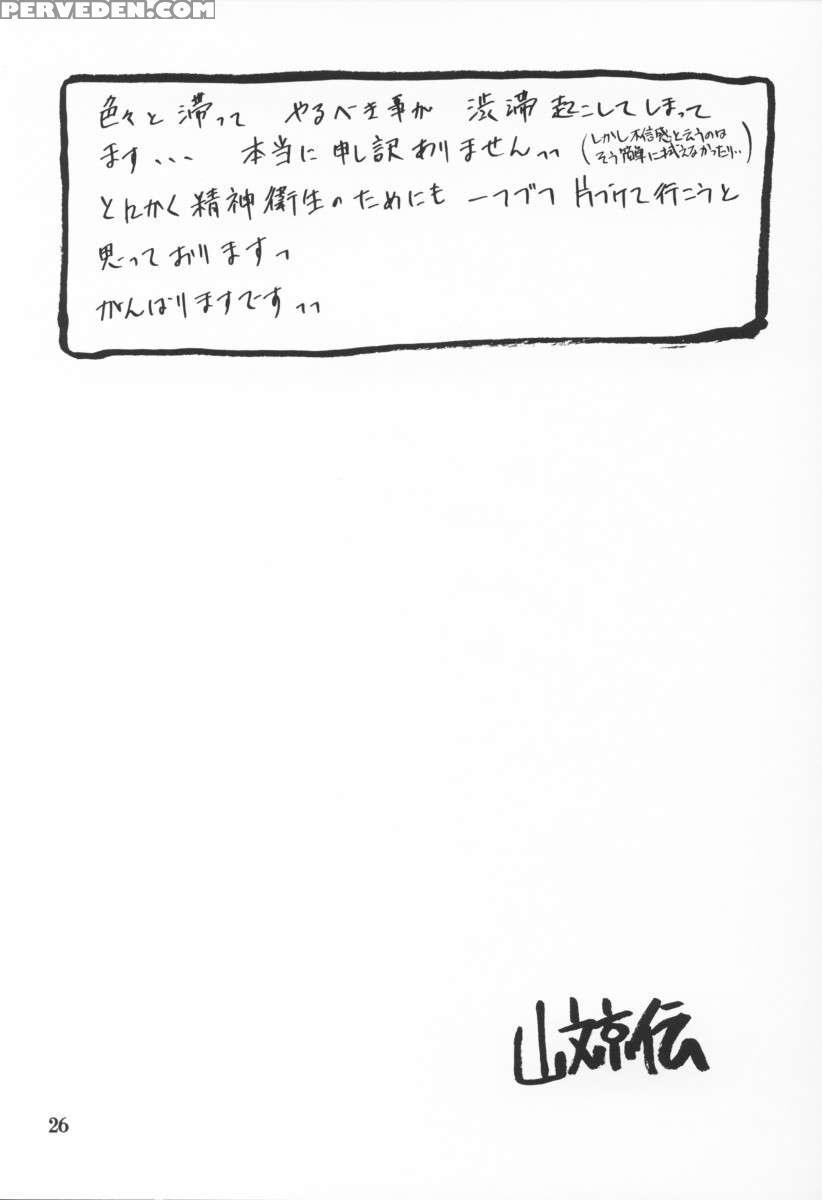 PERVEDEN.COM
色々と 滞って やるべき事が 渋滞起こしてしまって
ます、、、 本当に申し訳ありませんっっ (しかし不信感と云うのは
そう簡単に拭えなかったり‥)
とにかく精神衛生のためにも 一つづつ 片づけて行こうと
思っておりますっ
がんばりますですっっ
山文京伝
26